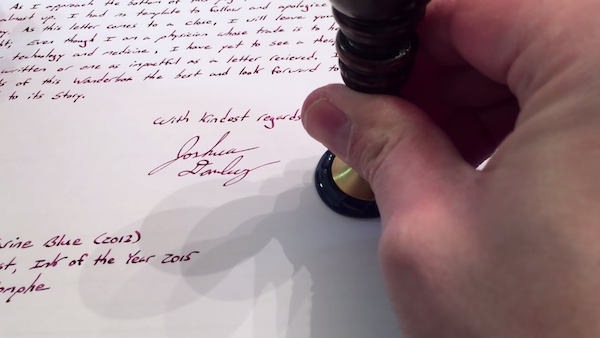 As I approach the bottom of this
almost up. I had no template to follow and apologize
. As this letter comes to a close, I will leave you
; Even though I am a physician whose trade is to
technology and medicine, I have yet to see a
written or one as impactful as a letter recieved. I
of this Wanderbot the best and look forward to
to its story.
With Kindest regards
Joshua
Danley
Blue (2012)
, Ink of the Year 2015